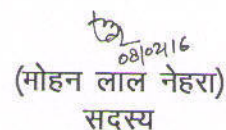 08/02/16
(मोहन लाल नेहरा)
सदस्य